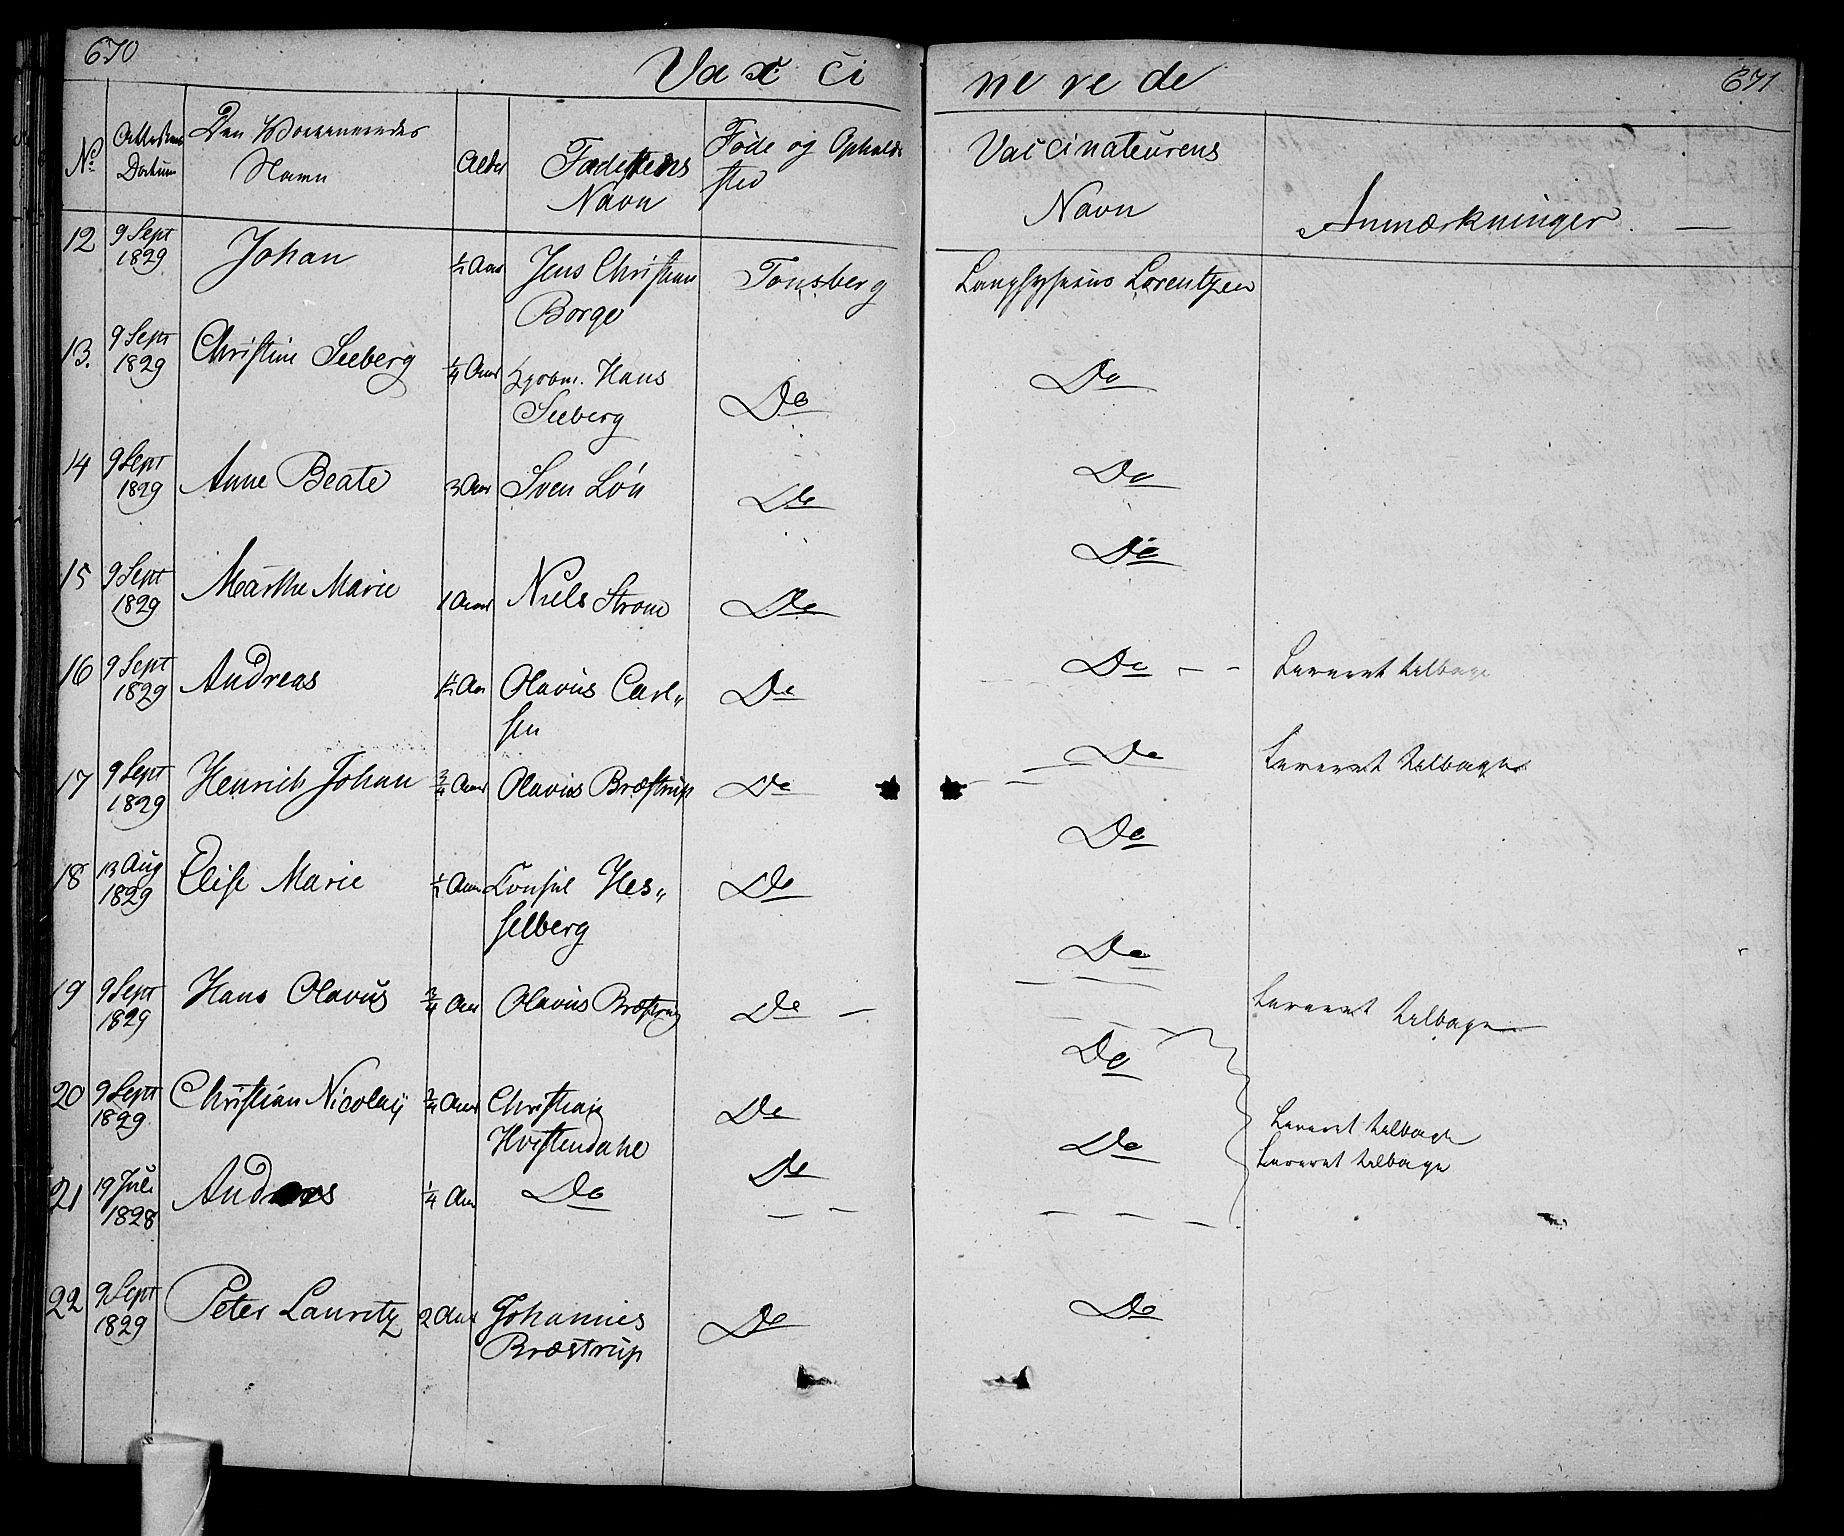 670
Vaxci
nerede
671
No
Attestens Datum
Den Vaccineredes Navn
Alder
Faderens Navn
Føde og Opholds sted
Vaccinateurens Navn
Anmærkninger. —
12 9 Sept 1829 Johan ½ Aar Jens Christian Borge Tønsberg Lorentzen
13. 9 Sept 1829 Christine Seeberg ¼ Aar Hans Seeberg Do Do
14 9 Sept 1829 Anne Beate 3 Aar Sven Do Do
15 9 Sept 1829 Marthe Marie 1 Aar Niels Strøm Do Do
16 9 Sept 1829 Andreas Aar Olavus Carl„sen Do Do - - Leveret tilbage
17 9 Sept 1829 Henrich Johan ¾ Aar Olavus Bræstrup Do Do Leveret tilbage
18 13 Aug 1829 Elise Marie ½ Aar Consul Hes„selberg Do Do
19 9 Sept 1829 Hans Olavus ¾ Aar Olavus Bræstrup Do — Do Leveret tilbage
20 9 Sept 1829 Christian Nicolaij ¾ Aar Christian Hvistendahl Do Do Leveret tilbage
21 19 Juli 1828 Andreas ¼ Aar Do Do Do Leveret tilbage
22 9 Sept 1829 Peter Lauritz 2 Aar Johannes Bræstrup Do Do